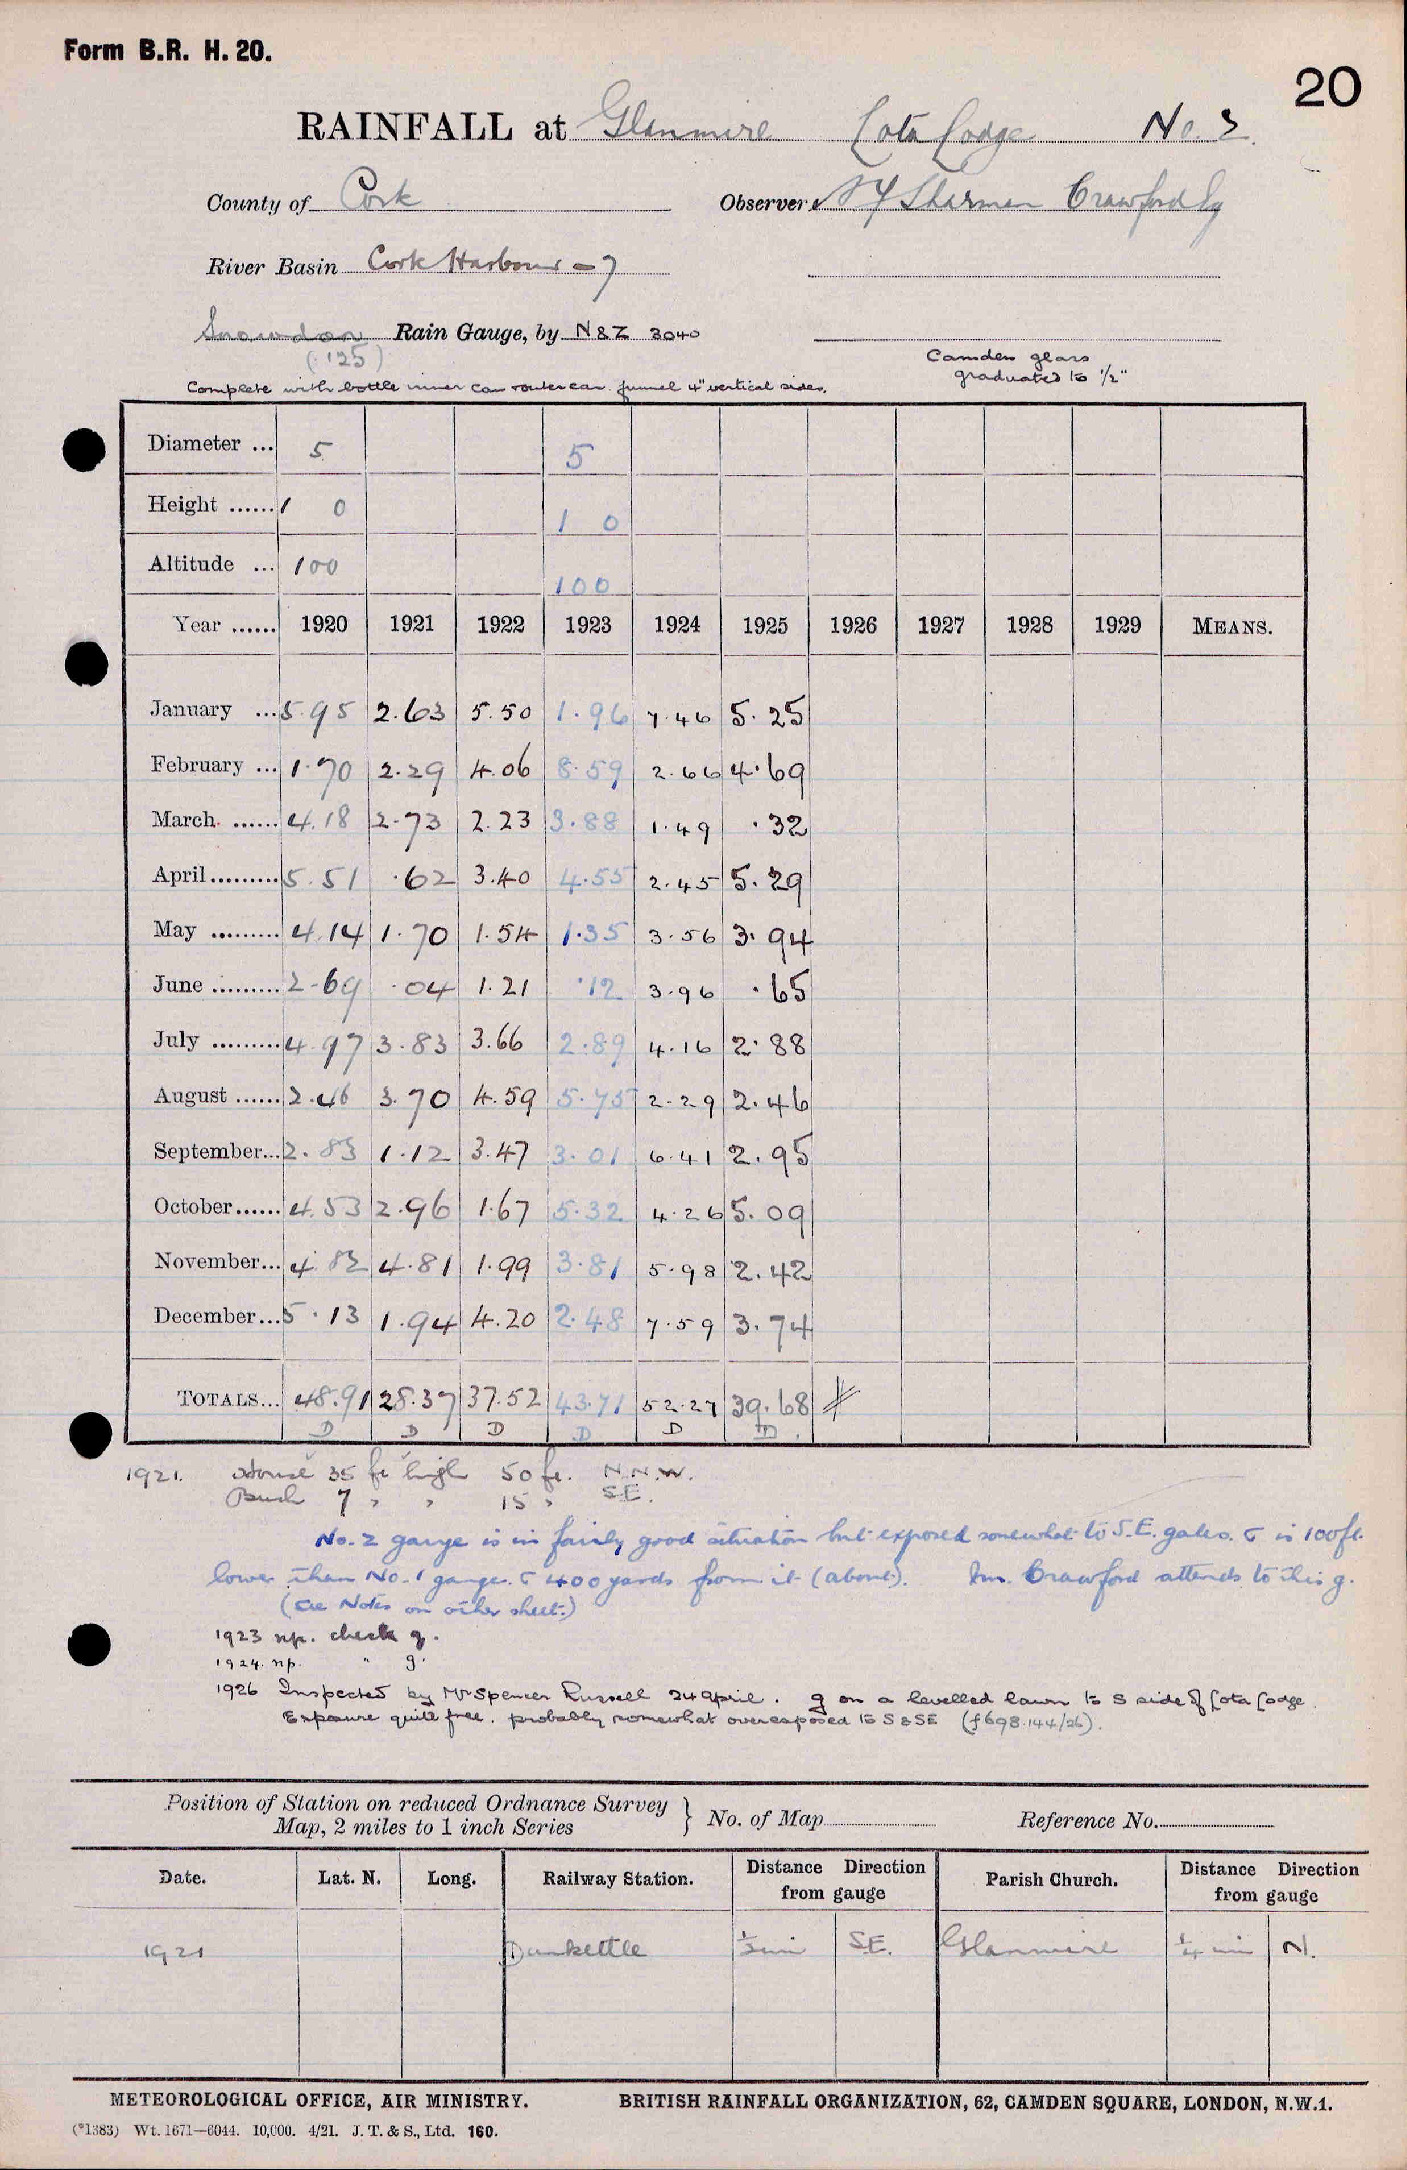 Form B.R. H. 20.
20
RAINFALL at Glanmire Lota Lodge No. 2
County of Cork Observer Sharman Crawford Esq
River Basin Cork Harbour - 7
Snowdon Rain Gauge, by N&Z 3040
(125)
Camden glass
graduated to ½"
Complete with bottle inner can outer can. funnel 4" vertical sides.
Diameter ... 5 5
Height ...... 1 0 1 0
Altitude ... 100 100
Year ...... 1920 1921 1922 1923 1924 1925 1926 1927 1928 1929 MEANS.
January ... 5.95 2.63 5.50 1.96 7.46 5.25
February ... 1.70 2.29 4.06 8.59 2.66 4.69
March ...... 4.18 2.73 2.23 3.88 1.49 .32
April ......... 5.51 .62 3.40 4.55 2.45 5.29
May ......... 4.14 1.70 1.54 1.35 3.56 3.94
June ......... 2.69 .04 1.21 .12 3.96 .65
July ......... 4.97 3.83 3.66 2.89 4.16 2.88
August ...... 2.46 3.70 4.59 5.75 2.29 2.46
September... 2.83 1.12 3.47 3.01 6.41 2.95
October...... 4.53 2.96 1.67 5.32 4.26 5.09
November... 4.82 4.81 1.99 3.81 5.98 2.42
December... 5.13 1.94 4.20 2.48 7.59 3.74
TOTALS... 48.91 28.37 37.52 43.71 52.27 39.68
D D D D D D
1921. House 35 ft high 50 ft. N.N.W.
Bush 7 " " 15 " S.E.
No. 2 gauge is in fairly good situation but exposed somewhat to S.E. gales. & is 100 ft.
lower than No. 1 gauge & 400 yards from it (above). Mr. Crawford attends to this g.
(See Notes on other sheet.)
1923 np. check g.
1924. np. " g.
1926 Inspected by Mr Spencer Russell 24 April. g on a levelled lawn to S side of Lota Lodge.
Exposure quite free. probably somewhat overexposed to S & SE (f698.144/26).
Position of Station on reduced Ordnance Survey
Map, 2 miles to 1 inch Series } No. of Map Reference No.
Date. Lat. N. Long. Railway Station. Distance Direction from gauge Parish Church. Distance Direction from gauge
1921 Dunkettle ½ mi SE. Glanmire ¼ mi N.
METEOROLOGICAL OFFICE, AIR MINISTRY. BRITISH RAINFALL ORGANIZATION, 62, CAMDEN SQUARE, LONDON, N.W.1.
(*1383) Wt. 1671—6044. 10,000. 4/21. J. T. & S., Ltd. 160.